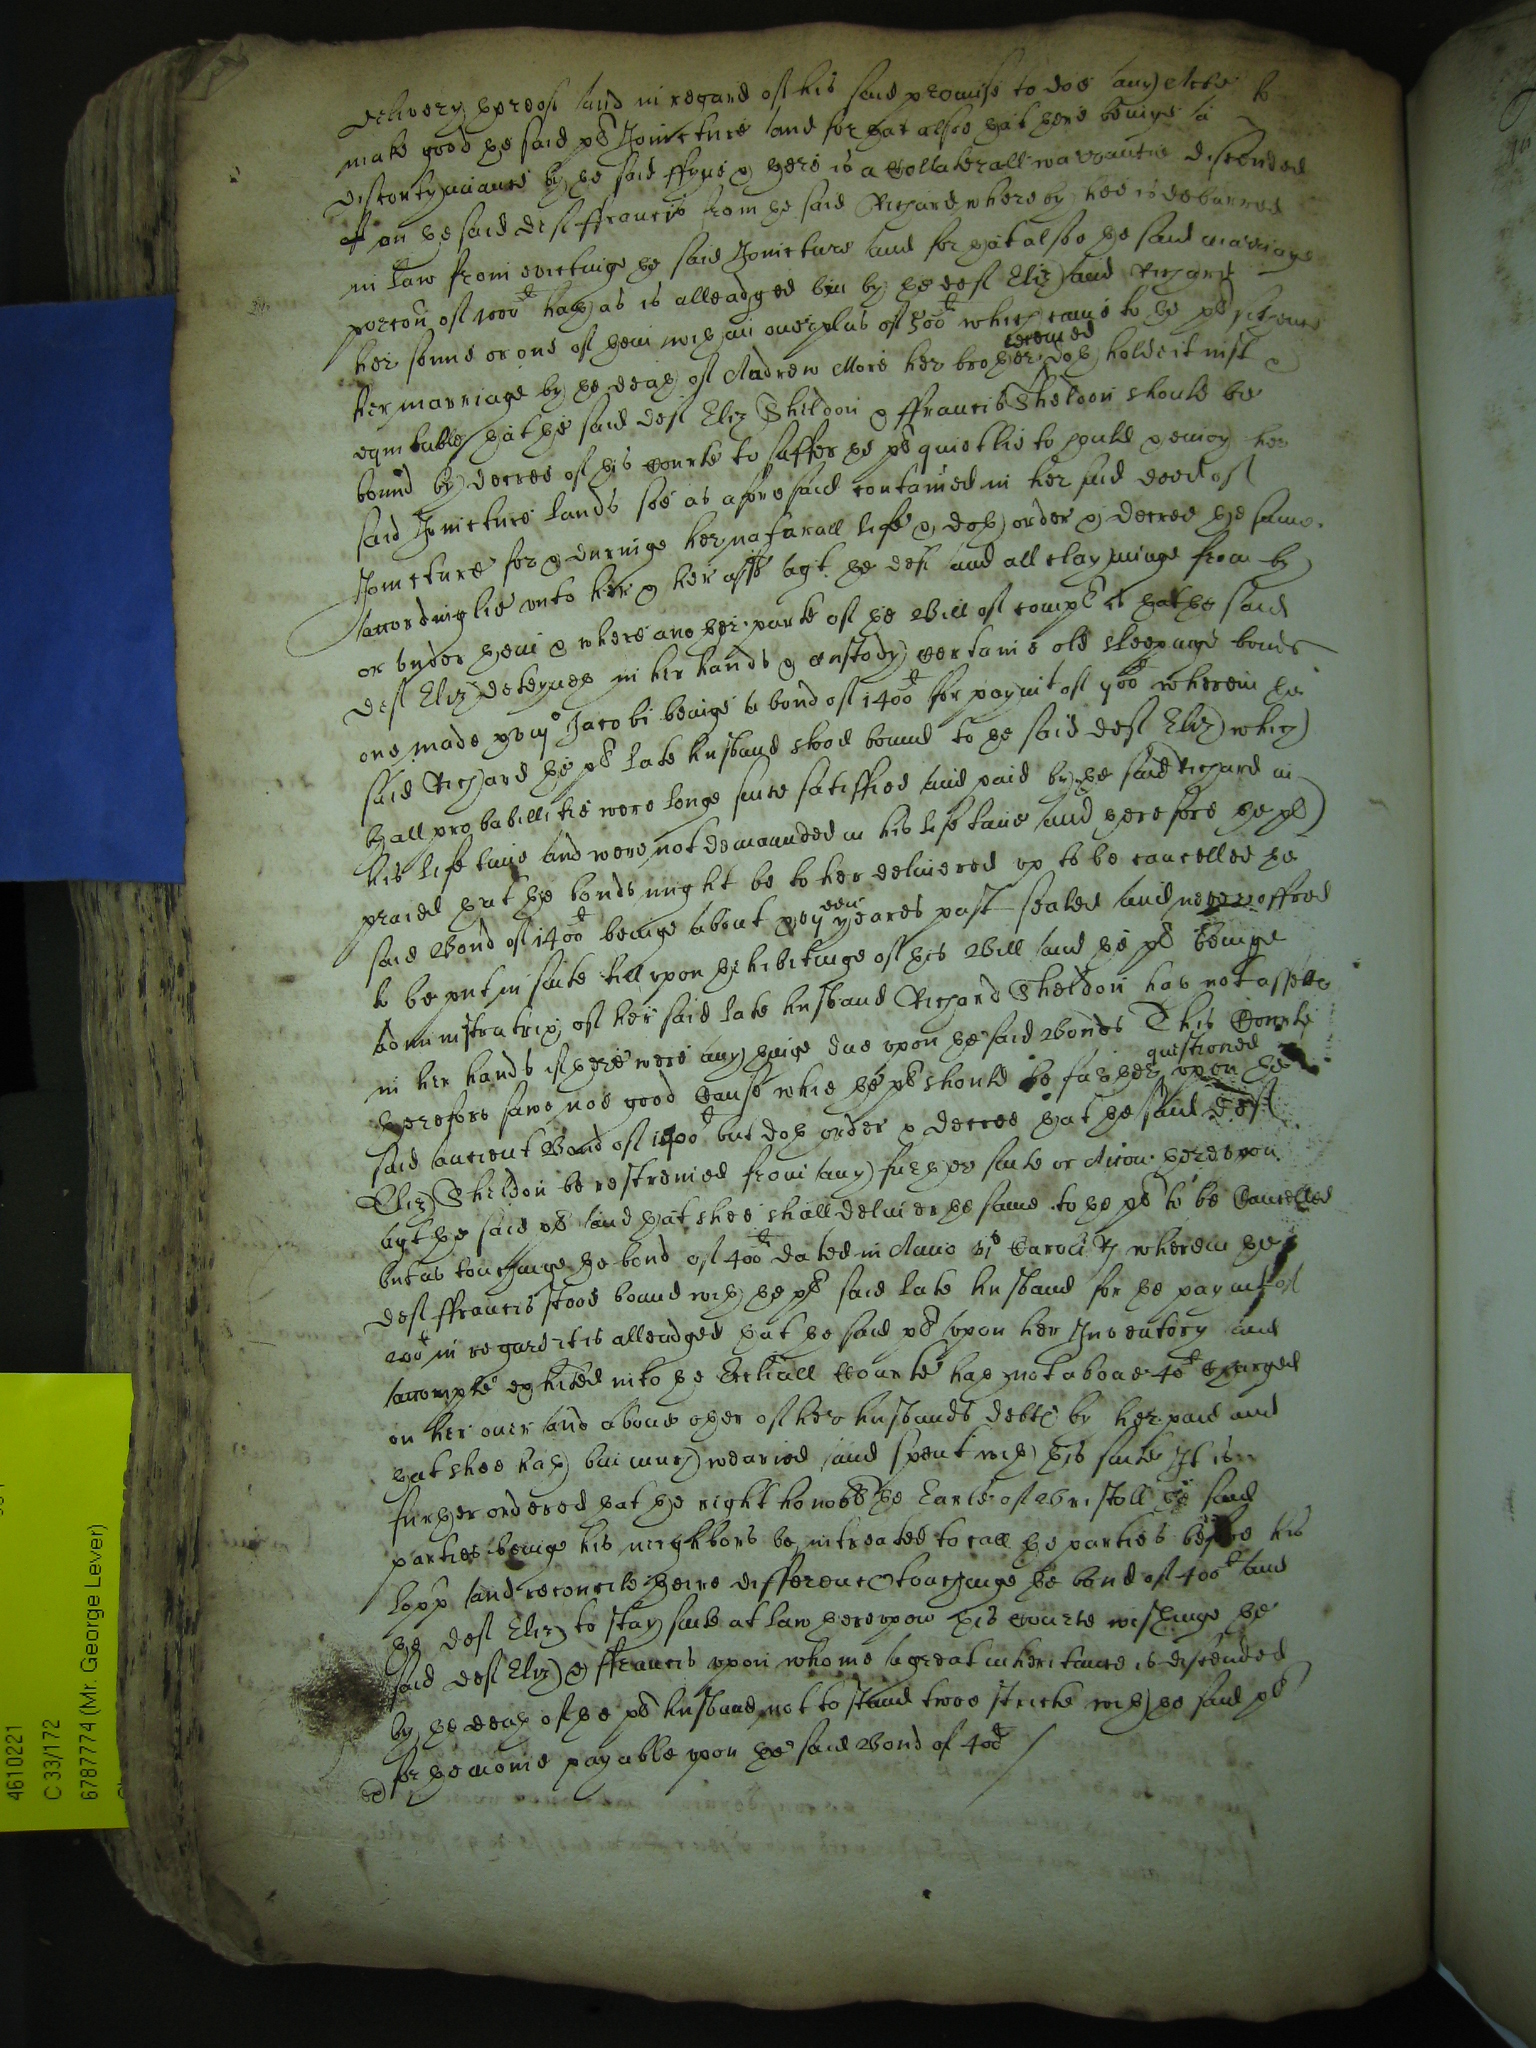 delivery thereof and in regard of his said promise to doe any Acte to
make good the said plt Joincture and for that alsoe that there beinge a
discontynuance by the said ffyne & there is a Collaterall warrantie discended
upon the said deft ffrancis from the said Richard whereby hee is debarred
in law from evictinge the said Joincture and for that alsoe the said marriage
porcon of 1000li hath as is alleadged bin by the deft Eliz and Richard
her sonne or one of them with an overplus of 500li which came to the plt sithence
her marriage by the death of Andrew More her brother received doth hold it iust &
equitable that the said deft Eliz Sheldon & ffrancis Sheldon should be
bound by decree of this Courte to suffer the plt quietlie to hould & enioy her
said Joincture lands soe as aforesaid contained in her said deed of
Joincture for & duringe her naturall life & doth order & decree the same
accordinglie unto her & her asss agt the deft and all clayminge from by
or under them & where another parte of the Bill of complt is that the said
deft Eliz deteynes in her hands & custody certaine old sleepinge bonds
one made Jacobi beinge a bond of 1400li for paymt of 700li wherein the
said Richard the plts late husband stood bound to the said deft Eliz which
by all probabillitie were longe since satisfied and paid by the said Richard in
his life time and were not demaunded in his life time and therefore the plt
praied that the bonds might be to her delivered up to be cancelled the
said Bond of 1400li beinge about yeares past sealed and never offred
to be put in suite till upon thexhibitinge of this Bill and the plt beinge
administratrix of her said late husband Richard Sheldon has not assetts
in her hands if there were any thinge due upon the said Bonds This Courte
therefore sawe noe good Cause whie the plt should be further questioned upon the
said ancient Bond of 1400li but doth order & decree that the said deft
Eliz Sheldon be restreined from any further suite or Accon thereupon
agt the said plt and that shee shall deliver the same to the plt to be Cancelled
but as touchinge the bond of 400li dated in Anno Caroli Rs wherein the
deft ffrancis stood bound with the plts said late husband for the paymt of
200li in regard it is alleadged that the said plt upon her Inventory and
accompte exhited into the Eccliall Courte hath not above 40li charged
on her over and above other of her husbands debts by her paid and
that shee hath bin much wearied and spent with this suite It is
further ordered that the right honoble the Earle of Bristoll the said
parties beinge his neighbors be intreated to call the parties before his
Lopp and reconcile theire difference touchinge the bond of 400li and
the deft Eliz to stay suite at law thereupon this Courte wishinge the
said deft Eliz & ffrancis upon whome a great inheritance is discended
by the death of the plts husband not to stand twoe stricte with the said plt
for the monie payable upon the said Bond of 400li
4610221
C 33/172
6787774 (Mr. George Lever)